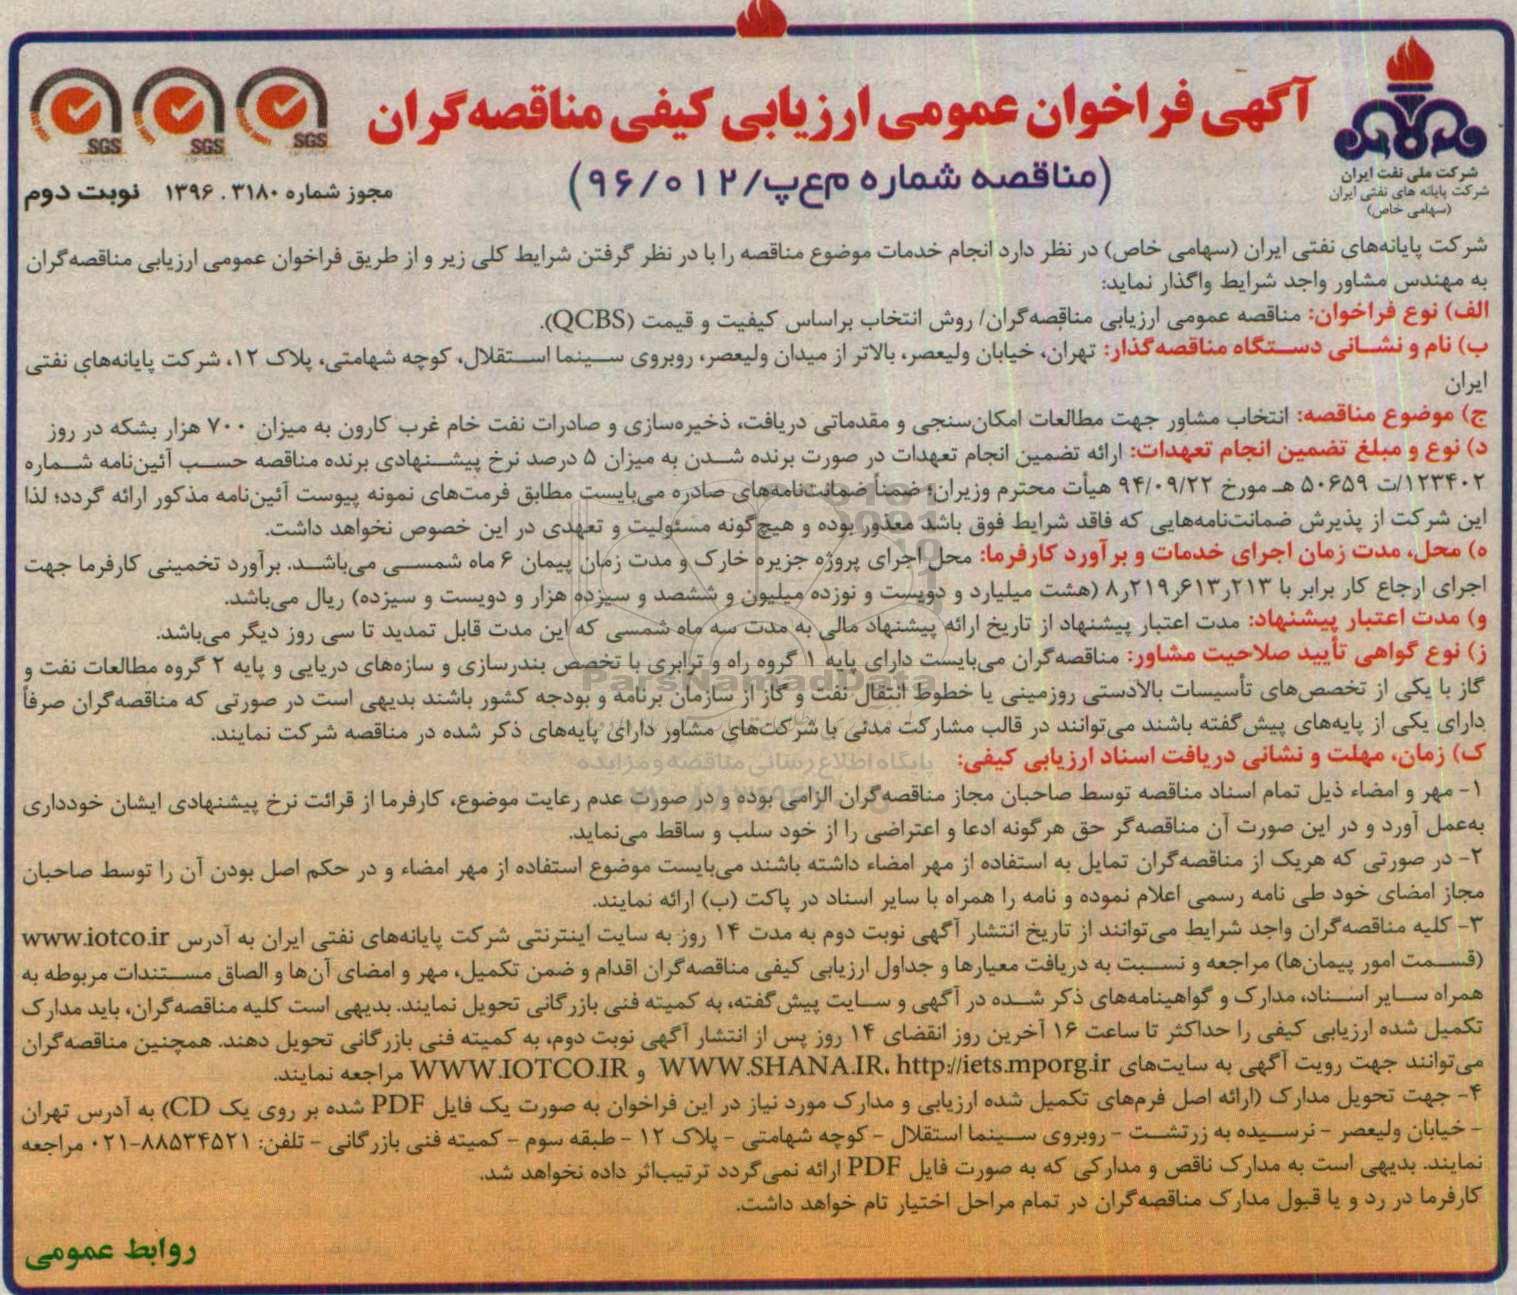 آگهی فراخوان عمومی ارزیابی کیفی مناقصه‌گران
(مناقصه شماره م‌ع‌پ/۹۶/۰۱۲)
شرکت ملی نفت ایران
شرکت پایانه های نفتی ایران
(سهامی خاص)
SGS SGS SGS
مجوز شماره ۳۱۸۰ . ۱۳۹۶ نوبت دوم
شرکت پایانه‌های نفتی ایران (سهامی خاص) در نظر دارد انجام خدمات موضوع مناقصه را با در نظر گرفتن شرایط کلی زیر و از طریق فراخوان عمومی ارزیابی مناقصه‌گران
به مهندس مشاور واجد شرایط واگذار نماید:
الف) نوع فراخوان: مناقصه عمومی ارزیابی مناقصه‌گران/ روش انتخاب براساس کیفیت و قیمت (QCBS).
ب) نام و نشانی دستگاه مناقصه‌گذار: تهران، خیابان ولیعصر، بالاتر از میدان ولیعصر، روبروی سینما استقلال، کوچه شهامتی، پلاک ۱۲، شرکت پایانه‌های نفتی
ایران
ج) موضوع مناقصه: انتخاب مشاور جهت مطالعات امکان‌سنجی و مقدماتی دریافت، ذخیره‌سازی و صادرات نفت خام غرب کارون به میزان ۷۰۰ هزار بشکه در روز
د) نوع و مبلغ تضمین انجام تعهدات: ارائه تضمین انجام تعهدات در صورت برنده شدن به میزان ۵ درصد نرخ پیشنهادی برنده مناقصه حسب آئین‌نامه شماره
۱۲۳۴۰۲/ت ۵۰۶۵۹ هـ مورخ ۹۴/۰۹/۲۲ هیأت محترم وزیران؛ ضمناً ضمانت‌نامه‌های صادره می‌بایست مطابق فرمت‌های نمونه پیوست آئین‌نامه مذکور ارائه گردد؛ لذا
این شرکت از پذیرش ضمانت‌نامه‌هایی که فاقد شرایط فوق باشد معذور بوده و هیچ‌گونه مسئولیت و تعهدی در این خصوص نخواهد داشت.
ه) محل، مدت زمان اجرای خدمات و برآورد کارفرما: محل اجرای پروژه جزیره خارک و مدت زمان پیمان ۶ ماه شمسی می‌باشد. برآورد تخمینی کارفرما جهت
اجرای ارجاع کار برابر با ۸ر۲۱۹ر۶۱۳ر۲۱۳ (هشت میلیارد و دویست و نوزده میلیون و ششصد و سیزده هزار و دویست و سیزده) ریال می‌باشد.
و) مدت اعتبار پیشنهاد: مدت اعتبار پیشنهاد از تاریخ ارائه پیشنهاد مالی به مدت سه ماه شمسی که این مدت قابل تمدید تا سی روز دیگر می‌باشد.
ز) نوع گواهی تأیید صلاحیت مشاور: مناقصه‌گران می‌بایست دارای پایه ۱ گروه راه و ترابری با تخصص بندرسازی و سازه‌های دریایی و پایه ۲ گروه مطالعات نفت و
گاز با یکی از تخصص‌های تأسیسات بالادستی روزمینی یا خطوط انتقال نفت و گاز از سازمان برنامه و بودجه کشور باشند بدیهی است در صورتی که مناقصه‌گران صرفاً
دارای یکی از پایه‌های پیش‌گفته باشند می‌توانند در قالب مشارکت مدنی با شرکت‌های مشاور دارای پایه‌های ذکر شده در مناقصه شرکت نمایند.
ک) زمان، مهلت و نشانی دریافت اسناد ارزیابی کیفی:
۱- مهر و امضاء ذیل تمام اسناد مناقصه توسط صاحبان مجاز مناقصه‌گران الزامی بوده و در صورت عدم رعایت موضوع، کارفرما از قرائت نرخ پیشنهادی ایشان خودداری
به‌عمل آورد و در این صورت آن مناقصه‌گر حق هرگونه ادعا و اعتراضی را از خود سلب و ساقط می‌نماید.
۲- در صورتی که هریک از مناقصه‌گران تمایل به استفاده از مهر امضاء داشته باشند می‌بایست موضوع استفاده از مهر امضاء و در حکم اصل بودن آن را توسط صاحبان
مجاز امضای خود طی نامه رسمی اعلام نموده و نامه را همراه با سایر اسناد در پاکت (ب) ارائه نمایند.
۳- کلیه مناقصه‌گران واجد شرایط می‌توانند از تاریخ انتشار آگهی نوبت دوم به مدت ۱۴ روز به سایت اینترنتی شرکت پایانه‌های نفتی ایران به آدرس www.iotco.ir
(قسمت امور پیمان‌ها) مراجعه و نسبت به دریافت معیارها و جداول ارزیابی کیفی مناقصه‌گران اقدام و ضمن تکمیل، مهر و امضای آن‌ها و الصاق مستندات مربوطه به
همراه سایر اسناد، مدارک و گواهینامه‌های ذکر شده در آگهی و سایت پیش‌گفته، به کمیته فنی بازرگانی تحویل نمایند. بدیهی است کلیه مناقصه‌گران، باید مدارک
تکمیل شده ارزیابی کیفی را حداکثر تا ساعت ۱۶ آخرین روز انقضای ۱۴ روز پس از انتشار آگهی نوبت دوم، به کمیته فنی بازرگانی تحویل دهند. همچنین مناقصه‌گران
می‌توانند جهت رویت آگهی به سایت‌های WWW.SHANA.IR، http://iets.mporg.ir و WWW.IOTCO.IR مراجعه نمایند.
۴- جهت تحویل مدارک (ارائه اصل فرم‌های تکمیل شده ارزیابی و مدارک مورد نیاز در این فراخوان به صورت یک فایل PDF شده بر روی یک CD) به آدرس تهران
- خیابان ولیعصر - نرسیده به زرتشت - روبروی سینما استقلال - کوچه شهامتی - پلاک ۱۲ - طبقه سوم - کمیته فنی بازرگانی - تلفن: ۸۸۵۳۴۵۲۱-۰۲۱ مراجعه
نمایند. بدیهی است به مدارک ناقص و مدارکی که به صورت فایل PDF ارائه نمی‌گردد ترتیب‌اثر داده نخواهد شد.
کارفرما در رد و یا قبول مدارک مناقصه‌گران در تمام مراحل اختیار تام خواهد داشت.
روابط عمومی
ParsNamadData
پایگاه اطلاع رسانی مناقصه و مزایده